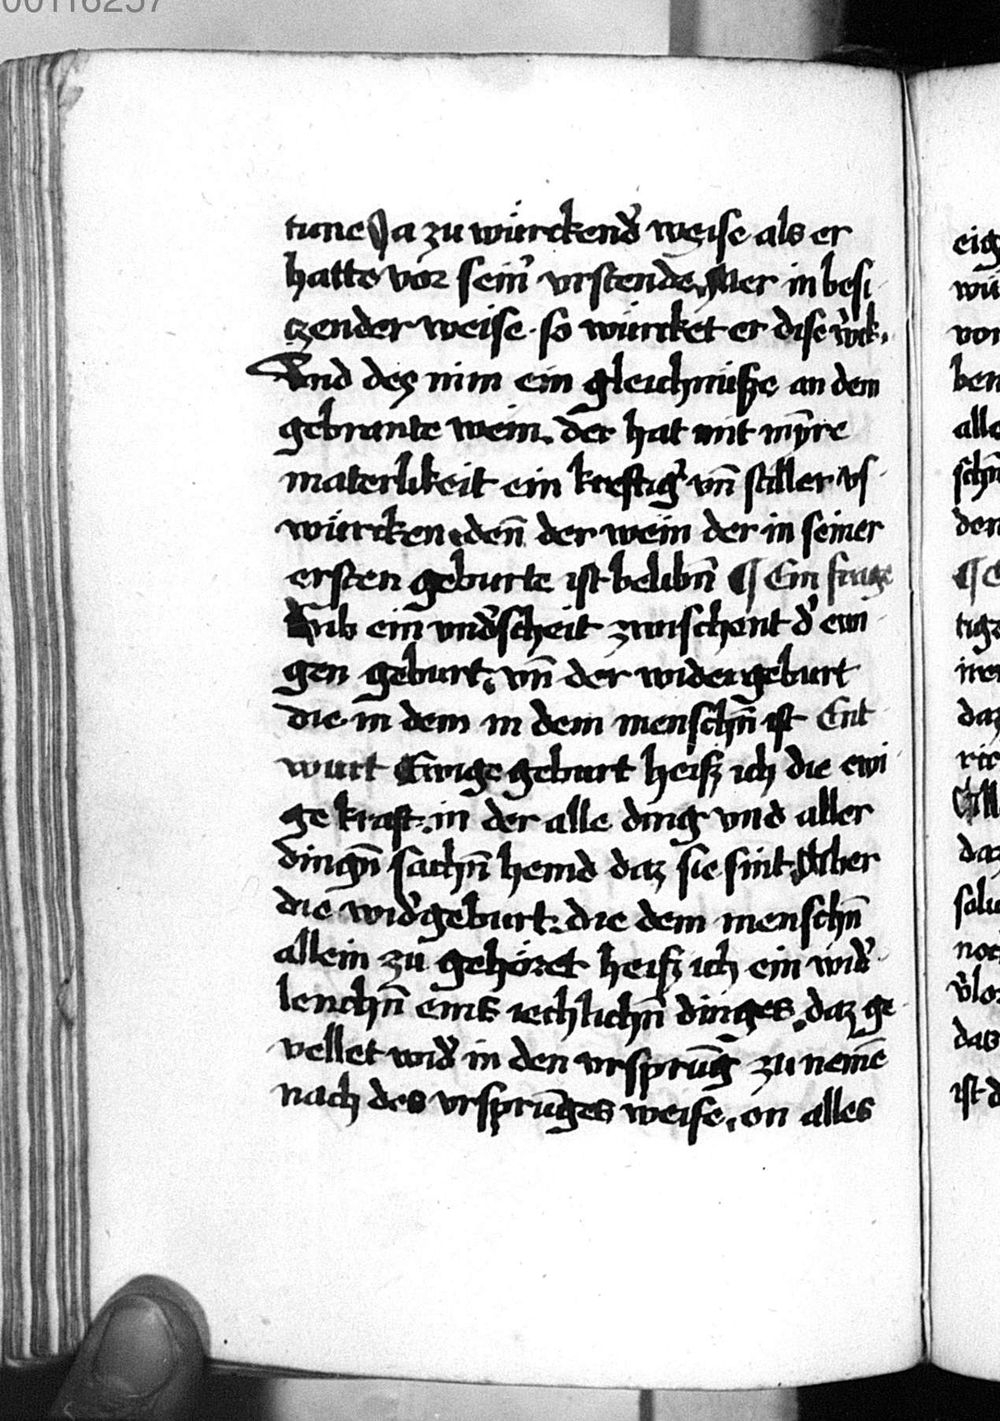 00116257
tune Ja zu würckend̉ weise als er
hatte vor sein̉ vrstende Aber in besi
czender weise · so würcket er dise w̉ck ·
Vnd des nim ein gleichnüsze an dem
gebrante wein · der hat mit mỹre
materlikeit ein kreftig̉ vn̄ stiller vs
würcken · den̄ der wein der in seiner
ersten geburte ist belibn̄ ¶ Ein frage
Gib ein vnd̉scheit zwischent d̉ ewi
gen geburt · vn̄ der widergeburt
die in dem in dem menschn̄ ist Ent
wurt Ewige geburt heisz ich die ewi
ge kraft · in der alle ding vnd aller
dingn̄ sachn̄ hend daz sie sint Aber
die wid̉geburt · die dem menschn̄
allein zü gehöret heisz ich ein wid̉
lenchn̄ eins iechlichn̄ dinges · daz ge
vellet wid̉ in den vrsprūg zu nemē
nach des vrsprūges weise · on alles
eig
wü
von
ben
alle
schn̄
den
¶ E
tige
iren
daz
daz
solu
noch
v̉lor
das
ist d